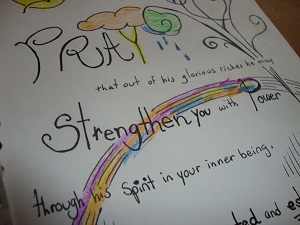 PRAY
that out of his glorious riches he may
Strengthen you with Power
through his Spirit in your inner being.
and es